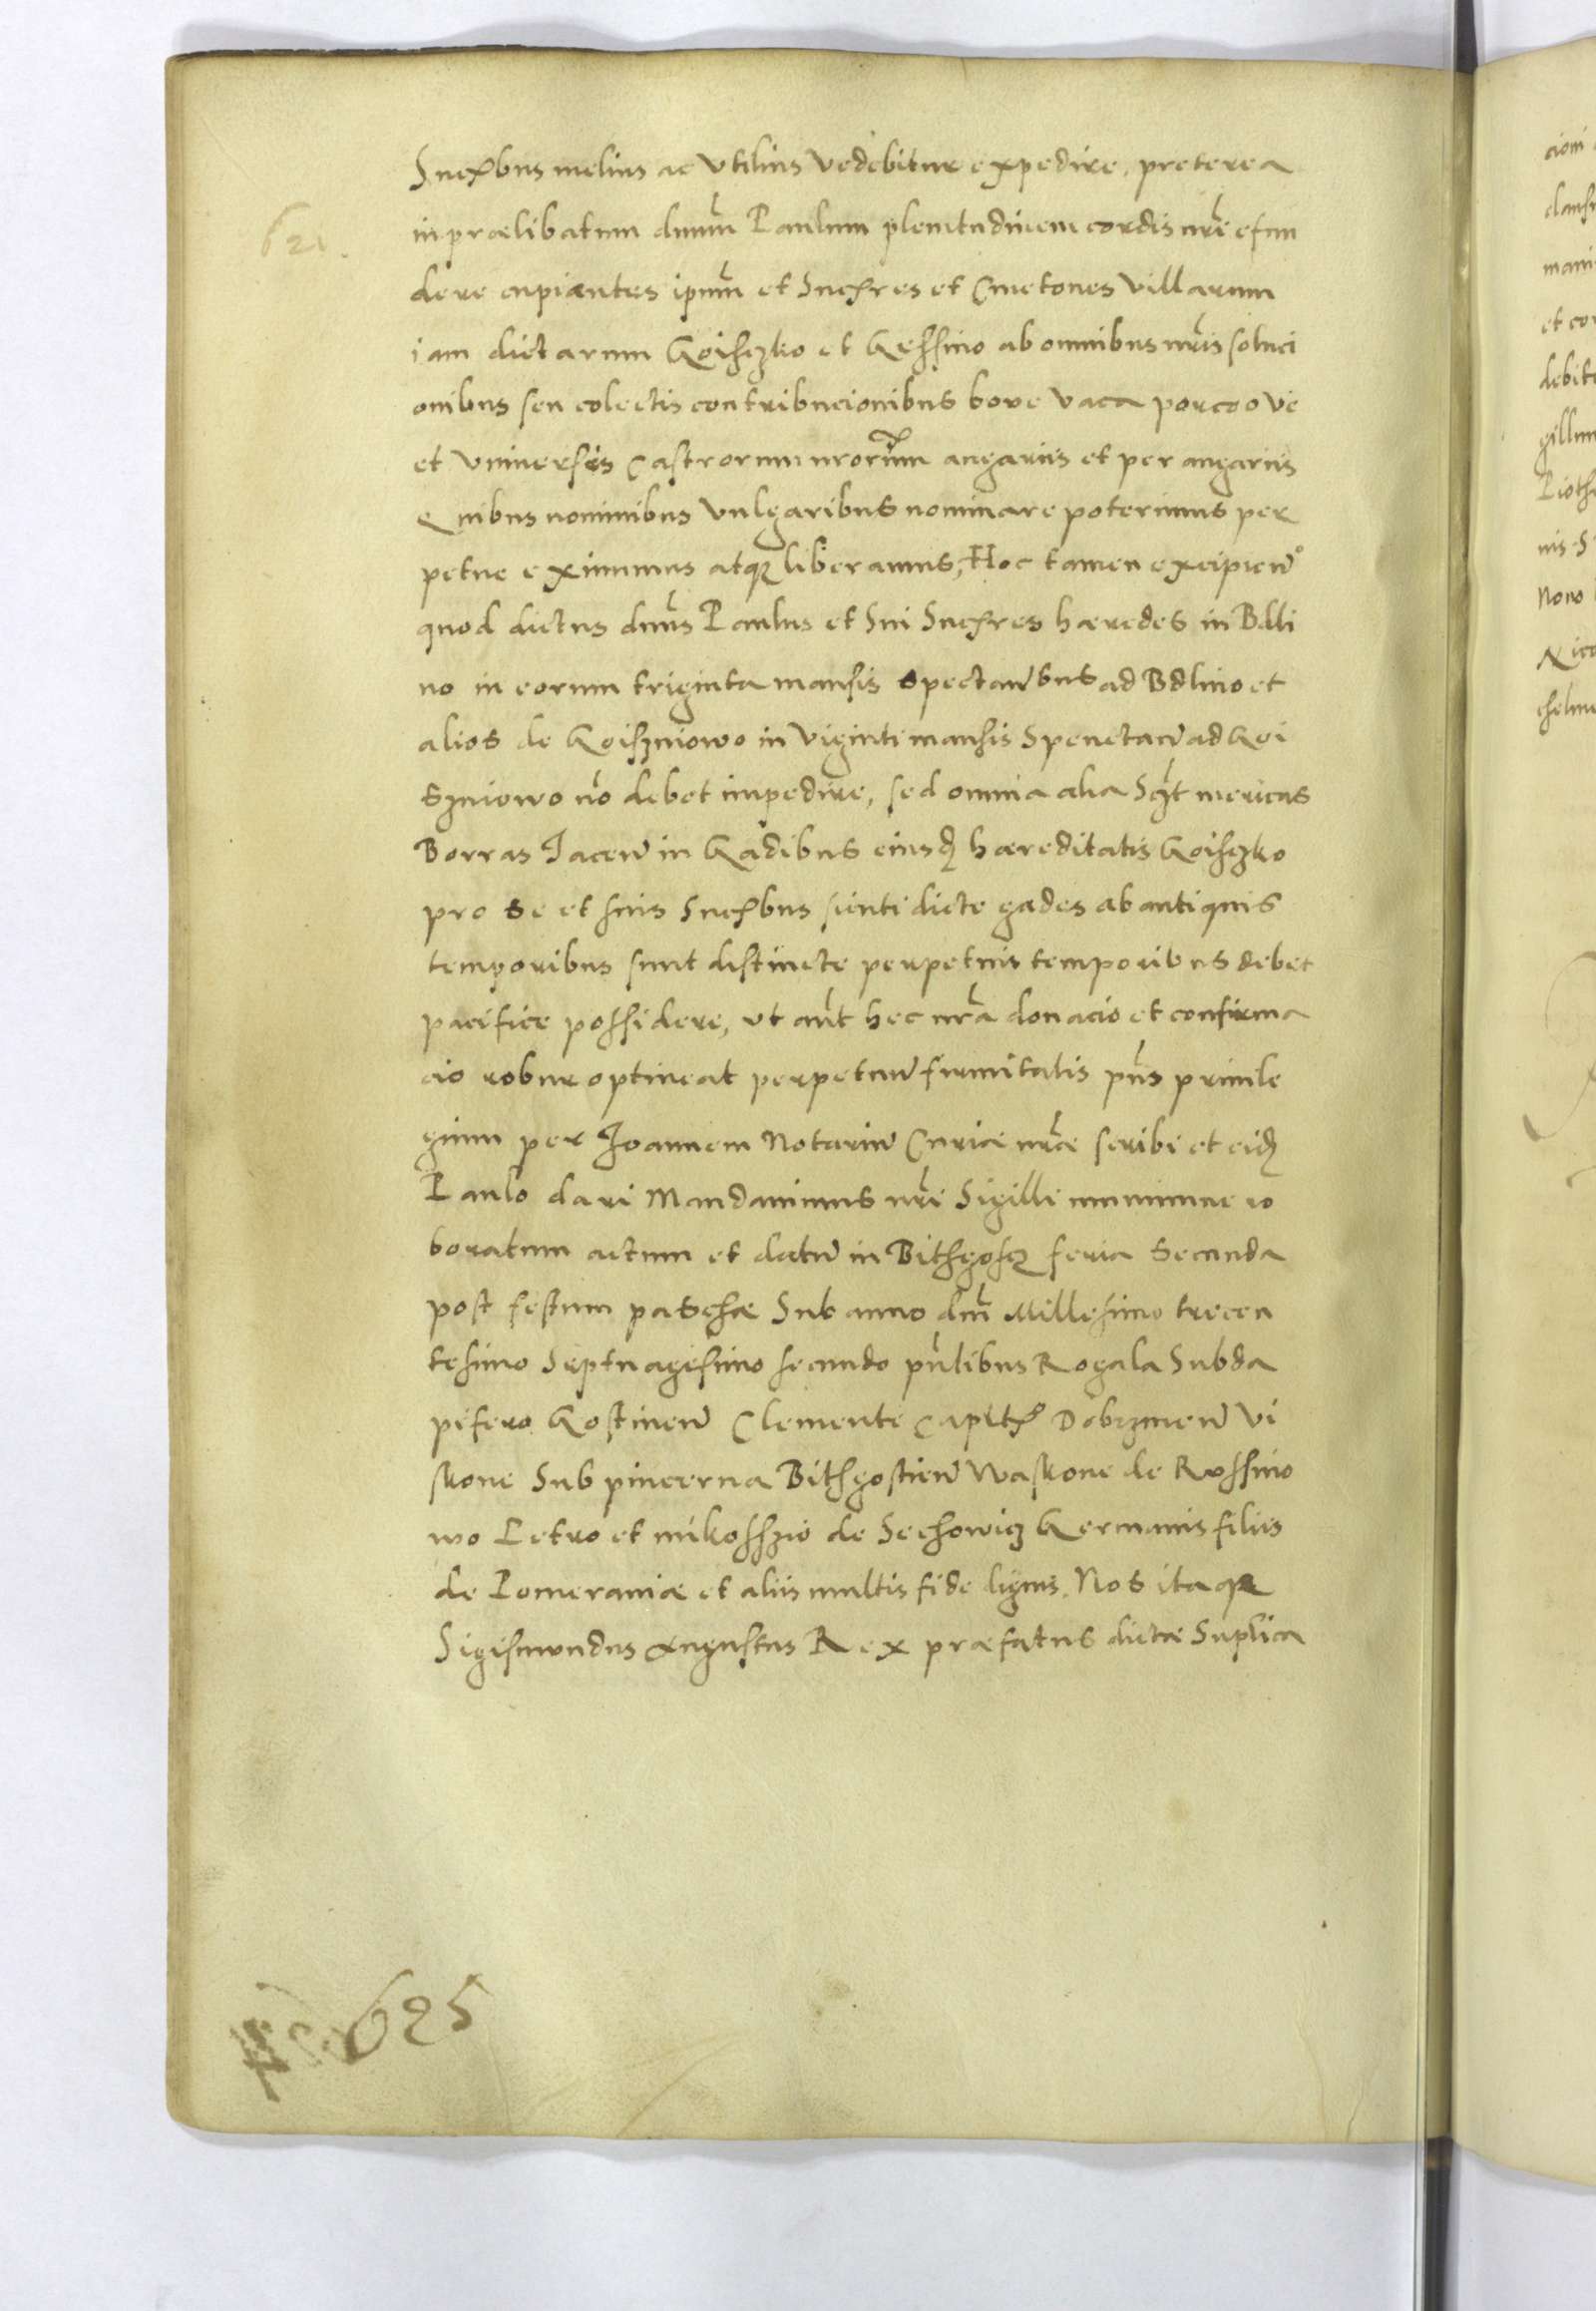 621.
Sucꝝbus melius ac vtilius vedebitur expedire, preterea
in prælibatum dnum̃ Paulum plenitudinem cordis nr̃i efun
dere cupiæntes ipum̃ et Sucꝝres et Cmetones villarum
iam dictarum Goiſczko et Gęsſino ab omnibus nr̃is soluci
onibus seu colectis contribucionibus bove vaca porco ove
et vniversis Castrorum nrorum̃ angariis et per angariis
Quibus nominibus vulgaribus nominare poterimus per
petue eximimus atqꝫ liberamus, Hoc tamen excipien̄°
quod dictus dnus̃ Paulus et Sui Sucꝝres hæredes in Bdli
no in eorum triginta mansis Spectan̄bus ad Bdlino et
alios de Goiſzniowo in viginti mansis Spenctan̄ ad Goi
Szniowo nõ debet impedire, sed omnia alia Sc̃t mericas
Borras Jacen̄ in Gadibus eiusdꝫ hæreditatis Goiſczko
pro Se et suis Sucꝝbus sicuti dicte gades ab antiquis
temporibus sunt distincte perpetuis temporibus debet
pacifice possidere, vt aut̃ hec nr̃a donacio et confirma
cio robur optineat perpetuæ firmitatis pñs privile
gium per Joannem Notariū Curiæ nr̃æ scribi et eidꝫ
Paulo dari Mandavimus nr̃i Sigilli munimine ro
boratum actum et datū in Bithgoſcꝫ feria Secunda
post festum paschæ Sub anno dni̇̃ Millesimo trecen
tesimo Septuagesimo secundo pñtibus Rogala Subda
pifero Gostinen̄ Clemente Capitꝝ Dobrzinen̄ Vi
skone Sub pincerna Bithgostien̄ Waskone de Rossino
wo Petro et mikosſzio de Sechowicz Germanis filiis
de Pomeraniæ et aliis multis fide dignis. Nos itaqꝫ
Sigismundus Augustus Rex præfatus dictæ Suplica
625